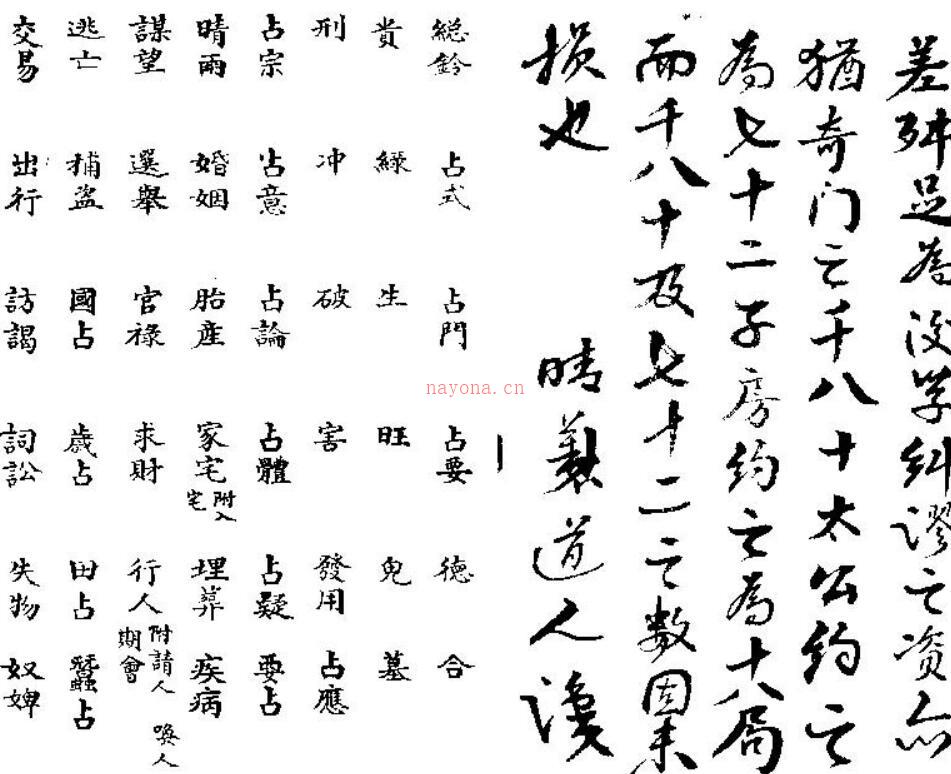 差舛足為後学糾謬之资亦
猶奇门之千八十太公約之
為七十二子房約之為十八局
而千八十及七十二之數固未
損也 晴蓑道人
總鈐 占式 占門 占要 德 合
貴 祿 生 旺 鬼 墓
刑 冲 破 害 發用 占應
占宗 占意 占論 占體 占疑 要占
晴雨 婚姻 胎産 家宅 附入宅 埋葬 疾病
謀望 選舉 官祿 求財 行人 附請人 喚人 期會
逃亡 捕盜 國占 歲占 田占 蠶占
交易 出行 訪謁 詞訟 失物 奴婢
nayona.cn